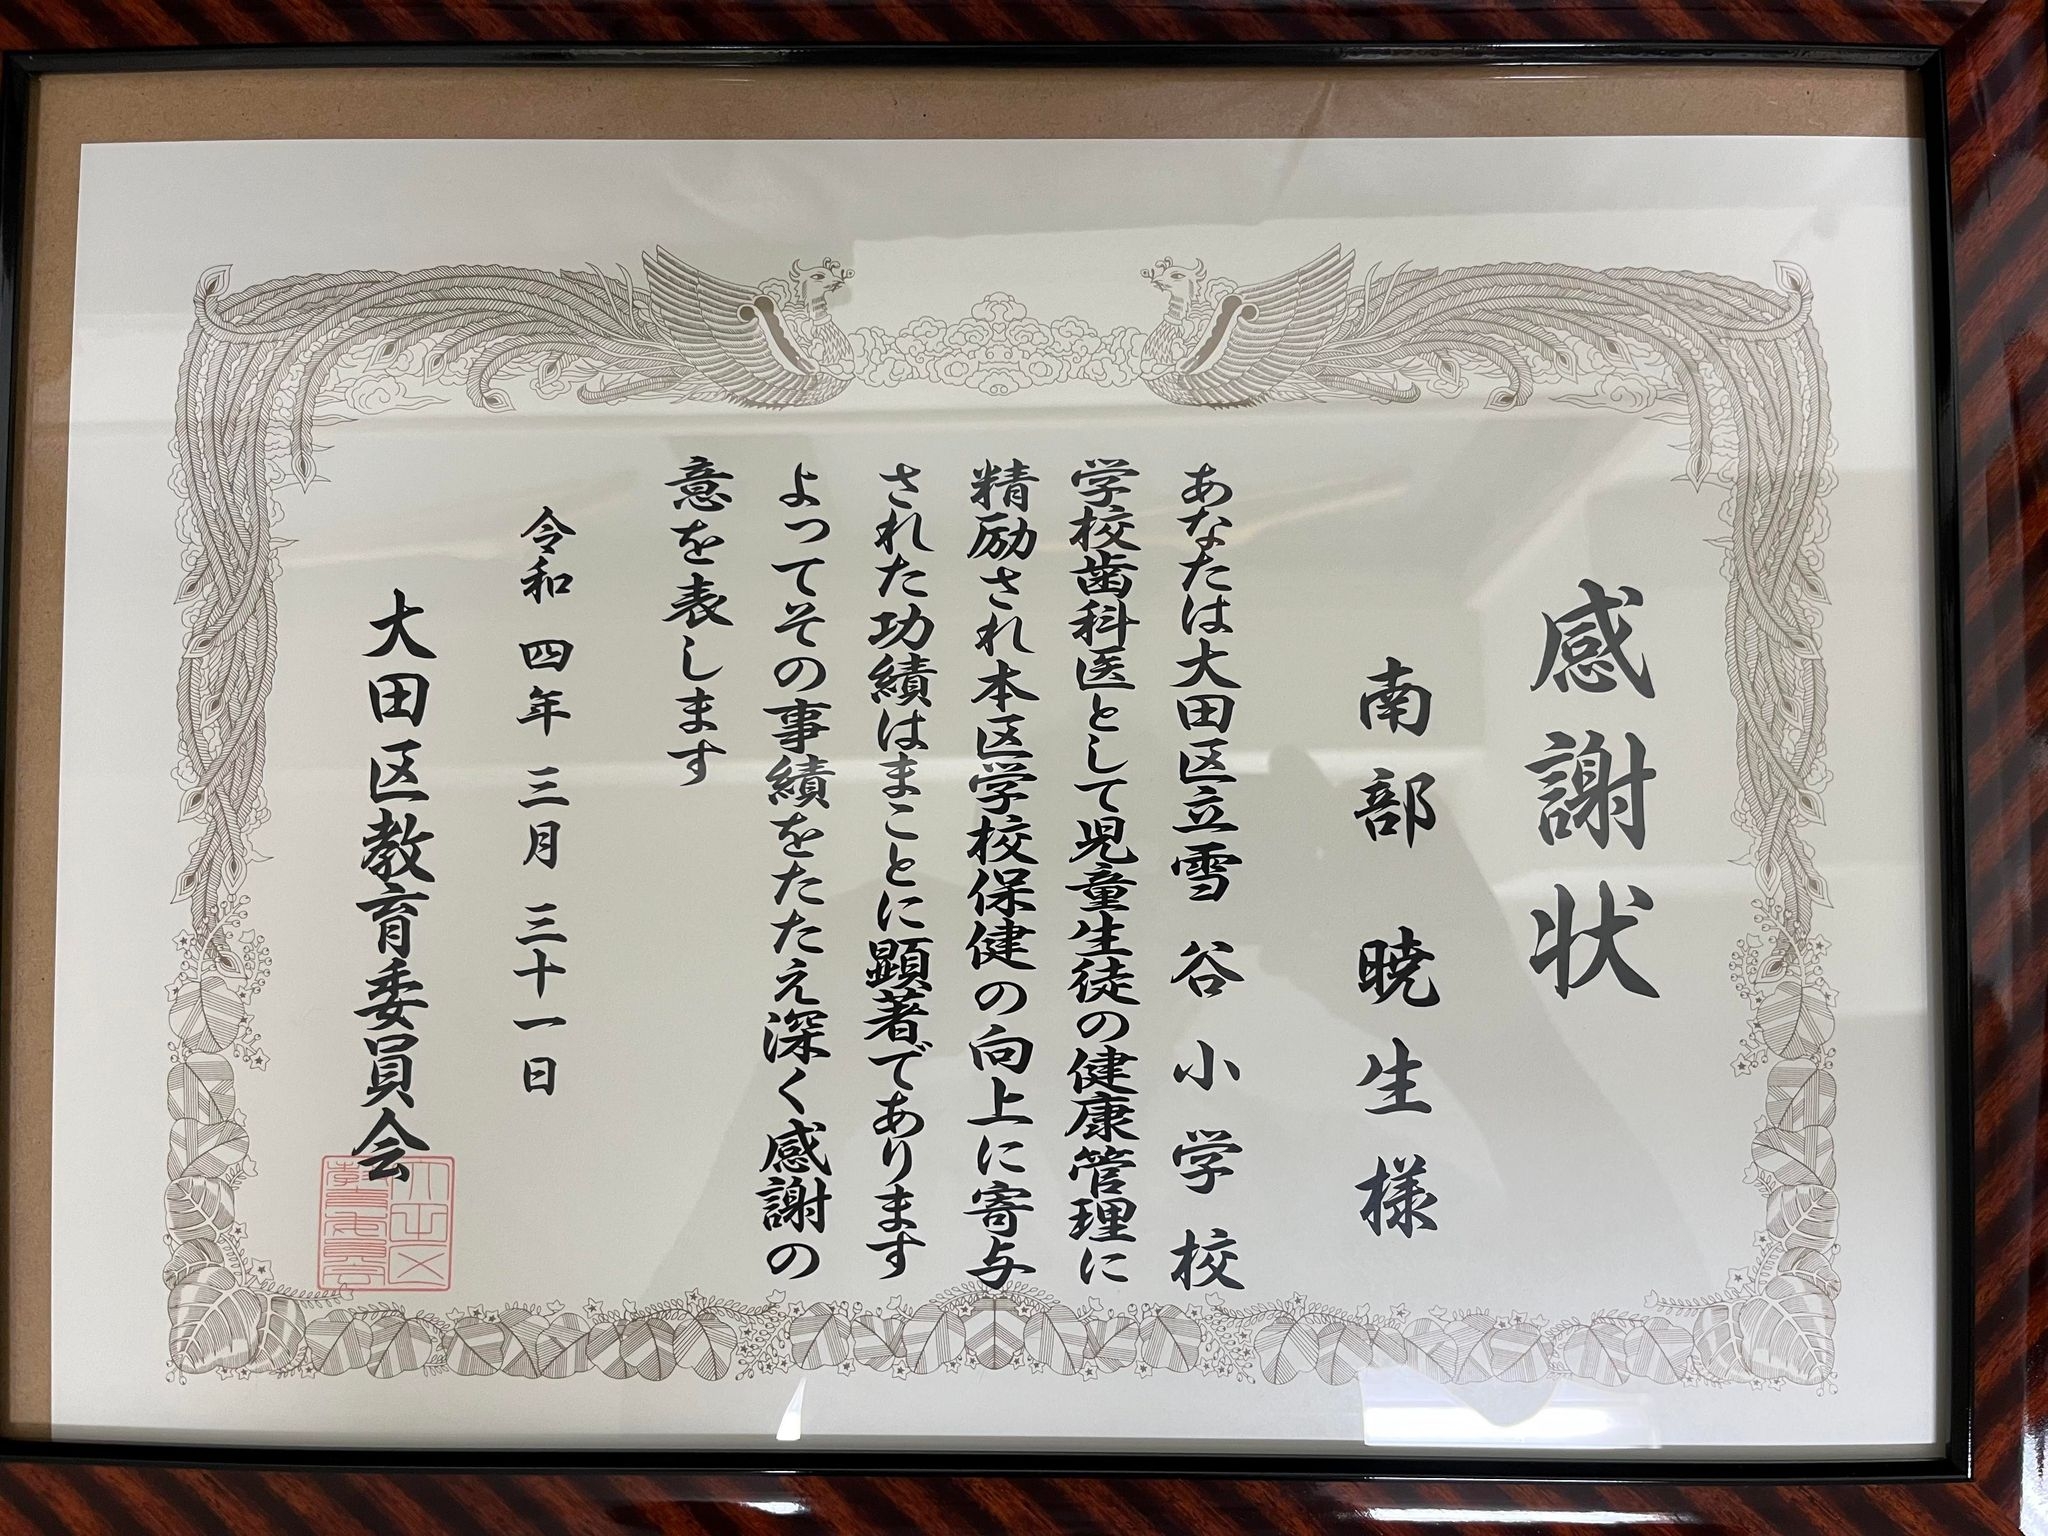 感謝状
南部暁生様
あなたは大田区立雪谷小学校
学校歯科医として児童生徒の健康管理に
精励され本区学校保健の向上に寄与
された功績はまことに顕著であります
よってその事績をたたえ深く感謝の
意を表します
令和四年三月三十一日
大田区教育委員会